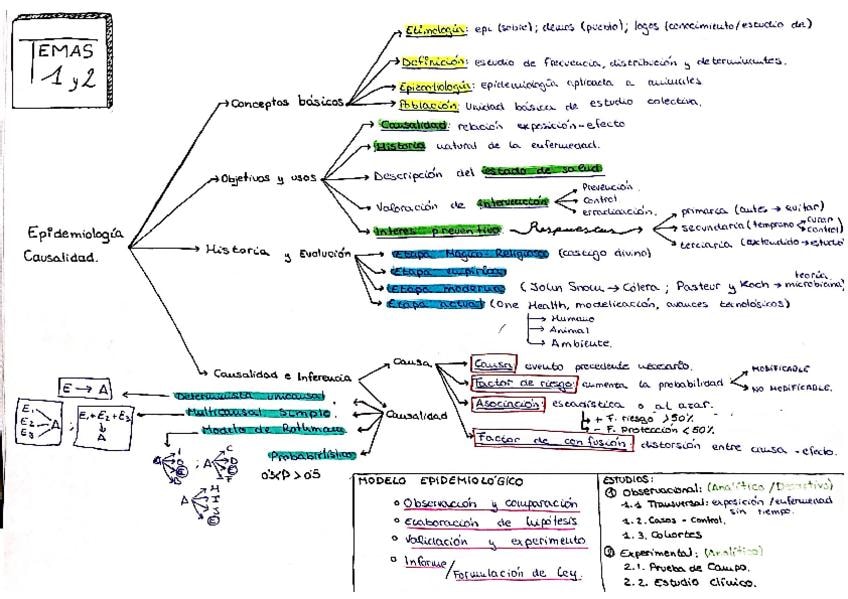 TEMAS
1 y 2
Epidemiología
Causalidad.
Conceptos básicos
Etimología: epi (sobre); demos (pueblo); logos (conocimiento/estudio de)
Definición: estudio de frecuencia, distribución y determinantes.
Epizootiología: epidemiología aplicada a animales
Población: Unidad básica de estudio colectiva.
Objetivos y usos
Causalidad: relación exposición-efecto
Historia natural de la enfermedad.
Descripción del estado de salud
Valoración de intervención
Prevención.
control.
erradicación.
Interés preventivo
Respuestas
primaria (antes → evitar)
secundaria (temprano → curar control)
terciaria (extendido → estudio
Historia y Evolución
Etapa Mágico-Religiosa (castigo divino)
Etapa empírica
Etapa moderna (John Snow → Cólera; Pasteur y Koch → teoría microbiana)
Etapa actual (One Health, modelización, avances tecnológicos)
Humano
Animal
Ambiente.
Causalidad e Inferencia
Causa
Causa: evento precedente necesario.
Factor de riesgo: aumenta la probabilidad
MODIFICABLE
NO MODIFICABLE.
Asociación: estadística o al azar.
+ F. riesgo >50%
- F. Protección <50%.
Factor de confusión: distorsión entre causa-efecto.
Causalidad
Determinista unicausal
E → A
Multicausal Simple.
E1
E2
E3
A
;
E1+E2+E3
↓
A
Modelo de Rothman
Probabilístico
0'5<P>0'5
MODELO EPIDEMIOLÓGICO
Observación y comparación
Elaboración de hipótesis
Validación y experimento
Informe/Formulación de Ley.
ESTUDIOS:
① Observacional: (Analítico/Descriptivo)
1.1 Transversal: exposición/enfermedad
sin tiempo.
1.2. Casos-Control.
1.3. Cohortes
② Experimental: (Analítico)
2.1. Prueba de Campo.
2.2. Estudio clínico.